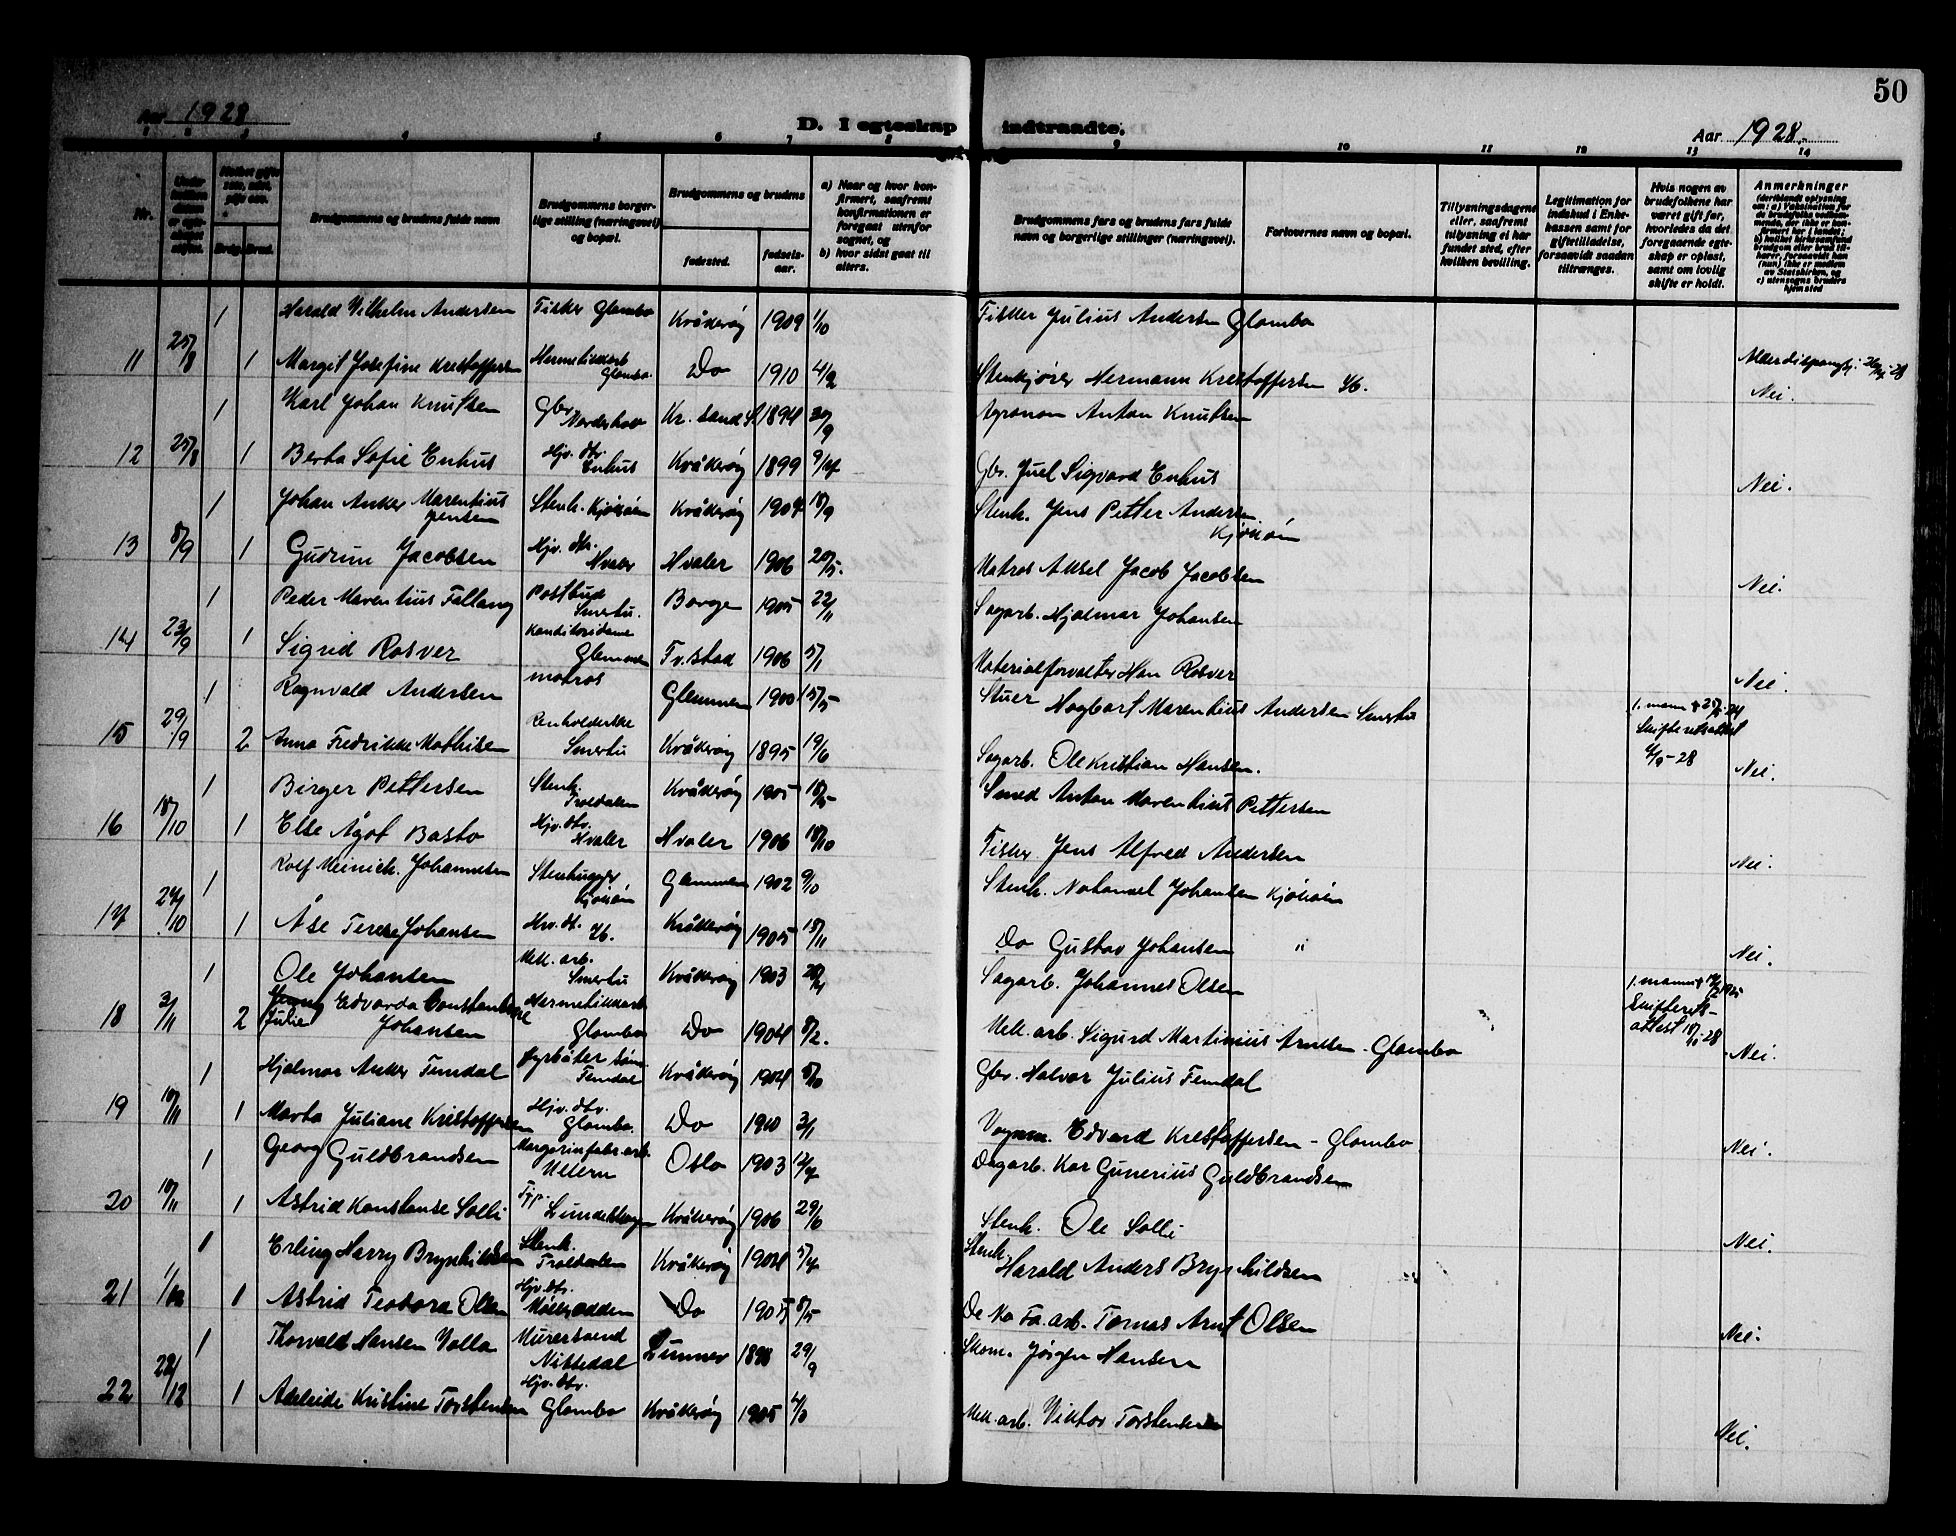 50
Aar 1928
D. I egteskap indtraadte.
Aar 1928.
1 2 3 4 5 6 7 8 9 10 11 12 13 14
Nr.
Brudg. Brud.
Brudgommens og brudens fulde navn
Brudgommens borgerlige stilling (næringsvei) og bopæl.
Brudgommens og brudens
fødested. fødselsaar.
a) Naar og hvor konfirmert, saafremt konfirmationen er foregaat utenfor sognet, og
b) hvor sidst gaat til alters.
Brudgommens fars og brudens fars fulde navn og borgerlige stillinger (næringsvei).
Forlovernes navn og bopæl.
Tillysningsdagene eller, saafremt tillysning ei har fundet sted, efter hvilken bevilling.
Legitimation for indskud i Enkekassen samt for giftetilladelse, forsaavidt saadan tiltrænges.
Hvis nogen av brudefolkene har været gift før, hvorledes da det foregaaende egteskap er opløst, samt om lovlig skifte er holdt.
Anmerkninger
1 Harald Vilhelm Andersen Fisker Glombo Kråkerøy 1909 1/10 Fisker Julius Andersen Glombo
11 25/8 1 Margit Josefine Kristoffersen Hermetikkarb. Glombo Do 1910 4/2 Stenkjører Hermann Kristoffersen Nei.
1 Karl Johan Knutsen Gbr Norderhov Kr. sand S. 1894 30/9 Agronom Anton Knutsen
12 25/8 1 Berta Sofie Enhus Hjv. dtr. Enhus Kråkerøy 1899 9/14 Gbr. Juel Sigvard Enhus Nei.
1 Johan Anker Marentius Jensen Stenh. Kjøkøen Kråkerøy 1904 18/9 Stenh. Jens Petter Andersen Kjøkøen
13 8/9 1 Gudrun Jacobsen Hjv. dtr. Hvaler Hvaler 1906 20/5. Matros Aksel Jacob Jacobsen Nei.
1 Peder Marentius Fallang Postbud Smertu. Borge 1905 22/11 Sagarb. Hjalmar Johansen
14 23/9 1 Sigrid Rosver Konditoridame Glemmen Fr.stad 1906 5/1 Materialforvalter Han Rosver Nei.
1 Ragnvald Andersen matros Glemmen 1900 15/5 Stuer Hagbart Marentius Andersen Smertu
15 29/9 2 Anna Fredrikke Mathisen Renholderske Smertu Kråkerøy 1895 19/6 Sagarb. Ole Kristian Hansen. 1. mann Skifteretsattest 6/9-28 Nei.
1 Birger Pettersen Stenh. Troldalen Kråkerøy 1905 18/5 Smed Anton Marentius Pettersen
16 18/10 1 Else Ågot Basto Hjv. dtr. Hvaler Hvaler 1906 18/10 Fisker Jens Alfred Andersen Nei.
1 Rolf Meinich. Johannesen Stenhugger Kjøkøen Glemmen 1902 9/10 Stenh. Natanael Johansen Kjøkøen
17 24/10 1 Åse Terese Johansen Kråkerøy 1905 15/11 Do Gustav Johansen " Nei.
1 Ole Johansen Mek. arb. Smertu Kråkerøy 1903 Sagarb. Johannes Olsen
18 3/11 2 Julie Edvarda Constanse Johansen Hermetikkarb Glombo Do 1904 8/2. Mek. arb. Sigurd Martinius Arntsen - Glombo 1. mann Skifterets-attest Nei.
1 Hjalmar Anker Femdal Fyrbøter Femdal Kråkerøy 1904 5/10 Gbr. Halvor Julius Femdal
19 10/11 1 Marta Juliane Kristoffersen Hjv. dtr. Glombo. Do 1910 3/1 Vognm. Edvard Kristoffersen - Glombo Nei.
1 Georg Guldbrandsen Margarinfabr.arb. Oslo 1903 Dagarb. Kar Gunerius Guldbrandsen
20 10/11 1 Astrid Konstanse Solli Kråkerøy 1906 29/6 Stenh. Ole Solli Nei.
1 Erling Harry Brynhildsen Stenh. Troldalen Kråkerøy 1904 5/4 Stenh. Harald Anders Brynhildsen
21 1/12 1 Astrid Teodora Olsen Hjv. dtr. Møkkodden Do 1905 8/5 Fa. arb. Tomas Arnt Olsen Nei.
1 Thorvald Hansen Volla Murersvend Nittedal Lunner 1898 29/9 Skom. Jørgen Hansen
22 22/12 1 Adeleide Kristine Torstensen Hjv. dtr. Glombo Kråkerøy 1905 4/0 Mek. arb. Viktor Torstensen Nei.